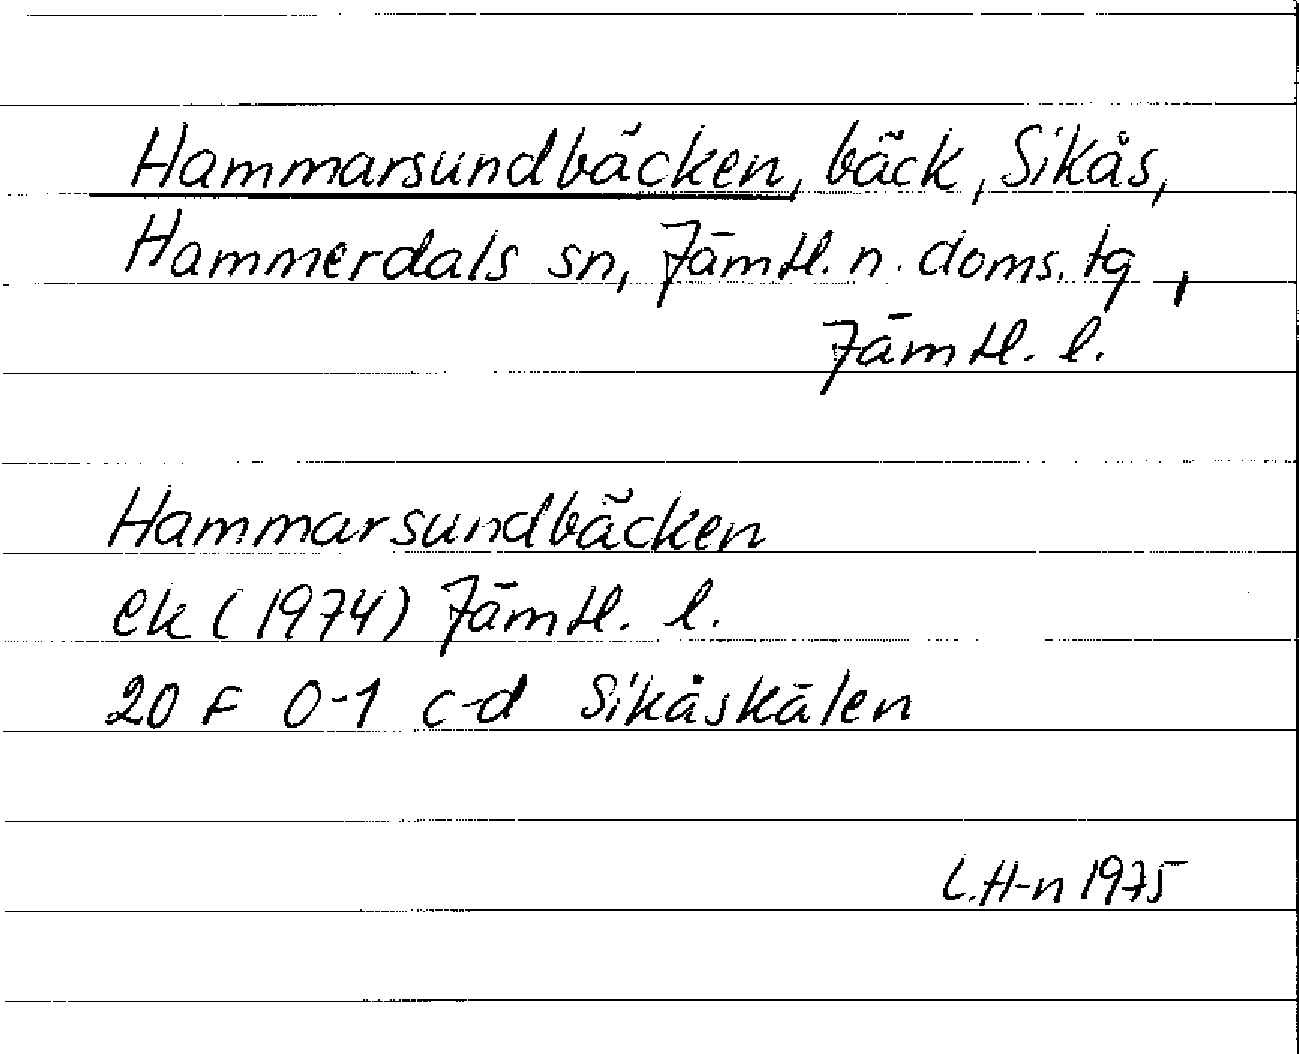 Hammarsundbäcken, bäck, Sikås,
Hammerdals sn, Jämtl. n. doms. tg,
Jämtl. l.
Hammarsundbäcken
ek (1974) Jämtl. l.
20 F 0-1 c-d Sikåskälen
L.H-n 1975